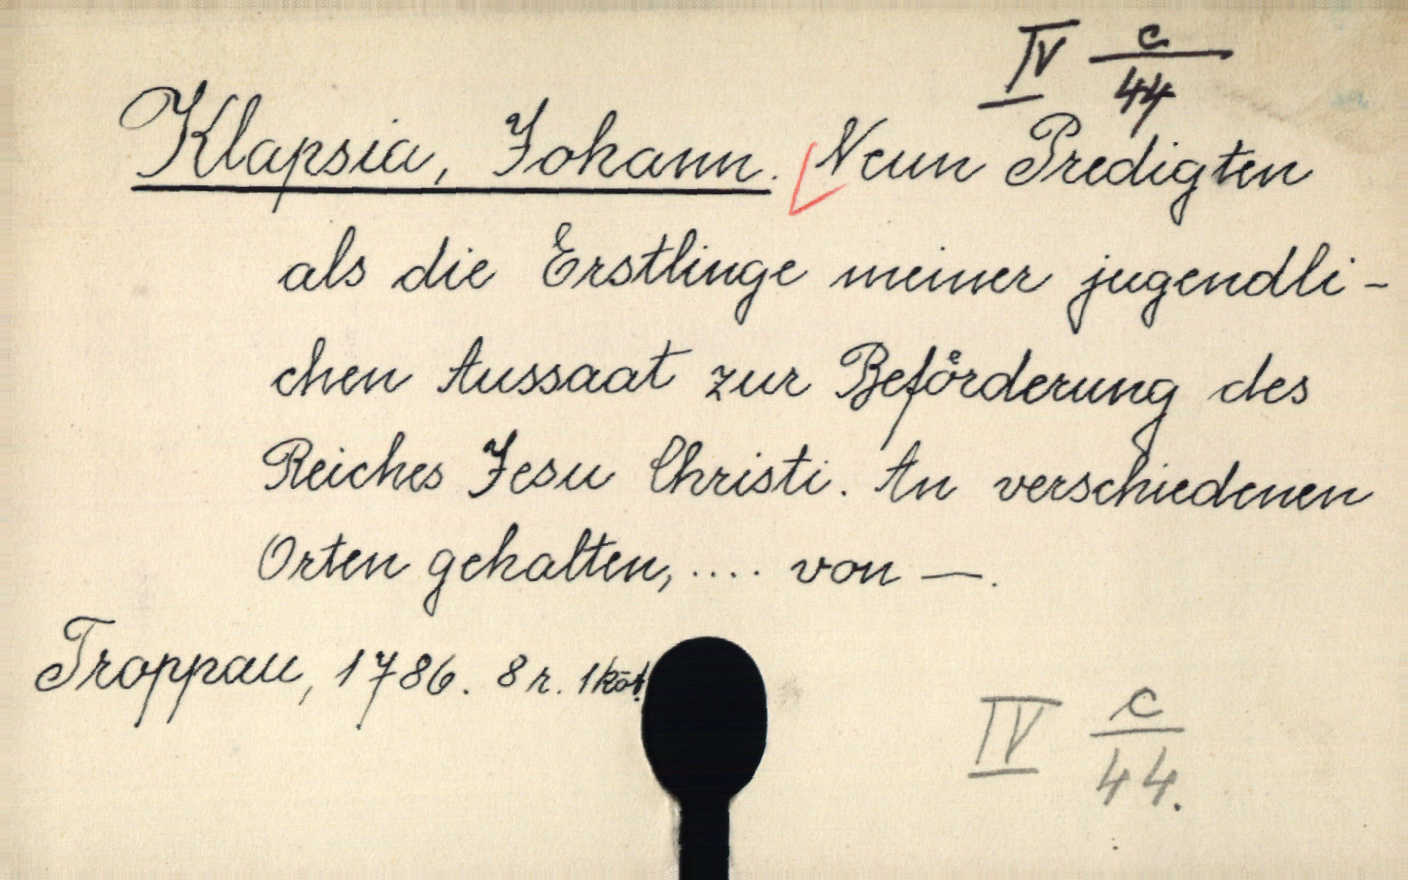 IV c/44
Klapsia, Johann. Neun Predigten
als die Erstlinge meiner jugendli-
chen Aussaat zur Beförderung des
Reiches Jesu Christi. An verschiedenen
Orten gehalten, .... von —.
Troppau, 1786. 8 r. 1 köt.
IV c/44.